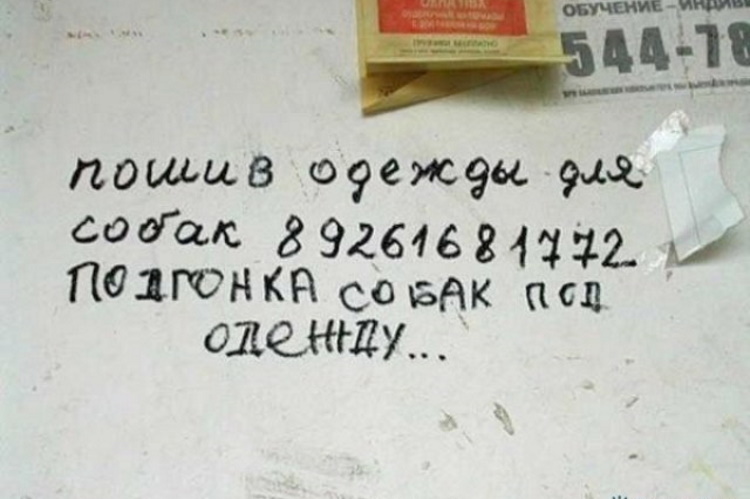 ОБУЧЕНИЕ - ИНДИВ
544-78
пошив одежды для
собак 89261681772
ПОДГОНКА СОБАК ПОД
ОДЕЖДУ...